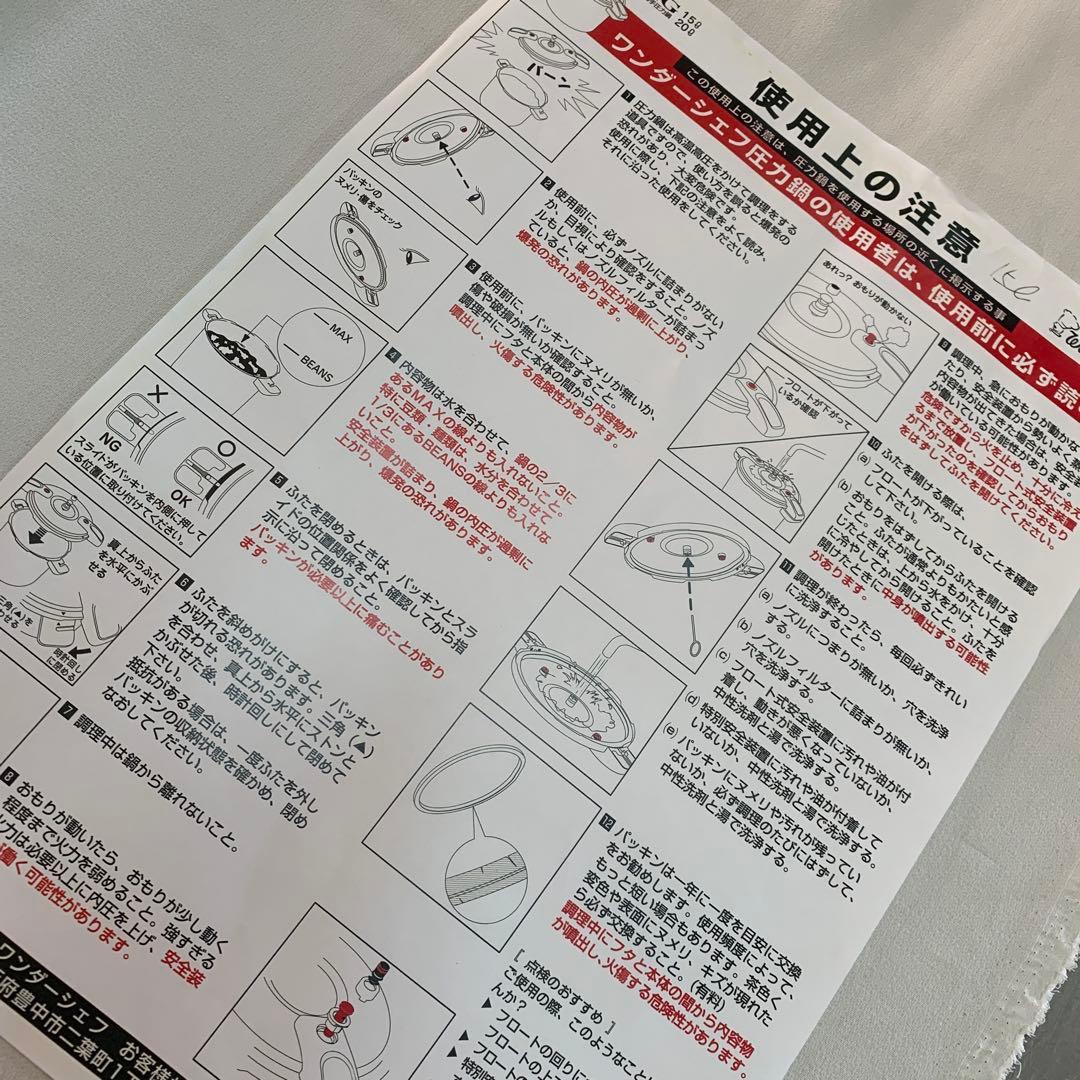 15ℓ
20ℓ
使用上の注意
この使用上の注意は、圧力鍋を使用する場所の近くに掲示する事
ワンダーシェフ圧力鍋の使用者は、使用前に必ず読
バーン
1 圧力鍋は高温高圧をかけて調理をする
道具ですので、使い方を誤ると爆発の
恐れがあり、大変危険です。
使用に際し、下記の注意をよく読み、
それに沿った使用をしてください。
2 使用前に、必ずノズルに詰まりがない
か、目視により確認をすること。ノズ
ルもしくはノズルフィルターが詰まっ
ていると、鍋の内圧が過剰に上がり、
爆発の恐れがあります。
パッキンの
ヌメリ・傷をチェック
3 使用前に、パッキンにヌメリが無いか、
傷や破損が無いか確認すること。
調理中にフタと本体の間から内容物が
噴出し、火傷する危険性があります。
MAX
BEANS
4 内容物は水を合わせて、鍋の2/3に
あるMAXの線よりも入れないこと。
特に豆類・麺類は、水分を合わせて
1/3にあるBEANSの線よりも入れな
いこと。
安全装置が詰まり、鍋の内圧が過剰に
上がり、爆発の恐れがあります。
NG
OK
スライドがパッキンを内側に押して
いる位置に取り付けてください。
5 ふたを閉めるときは、パッキンとスラ
イドの位置関係をよく確認してから指
示に沿って閉めること。
パッキンが必要以上に痛むことがあり
ます。
真上からふた
を水平にかぶ
せる
三角(▲)を
わせる
時計回し
に閉める
6 ふたを斜めがけにすると、パッキン
が切れる恐れがあります。三角(▲)
を合わせ、真上から水平にストンと
かぶせた後、時計回しにして閉めて
下さい。
抵抗がある場合は、一度ふたを外し
パッキンの収納状態を確かめ、閉め
なおしてください。
7 調理中は鍋から離れないこと。
8 おもりが動いたら、おもりが少し動く
程度まで火力を弱めること。強すぎる
火力は必要以上に内圧を上げ、安全装
働く可能性があります。
ワンダーシェフ お客様
府豊中市二葉町1丁
あれっ? おもりが動かない
9 調理中、急におもりが動かな
たり、安全装置から勢いよく蒸
内容物が出てきた場合は、安全
が働いている可能性があります。
危険ですから火を止め、十分に冷え
るまで放置し、フロート式安全装置
が下がったのを確認してからおもり
をはずしてふたを開けてください。
フロートが下がって
いるか確認
10 ふたを開ける際は、
(a) フロートが下がっていることを確認
して下さい。
(b) おもりをはずしてからふたを開ける
こと。ふたが通常よりもかたいと感
じたときは、上から水をかけ、十分
に冷やしてから開けること。ふたを
開けたときに中身が噴出する可能性
があります。
11 調理が終わったら、毎回必ずきれい
に洗浄すること。
(a) ノズルにつまりが無いか、穴を洗浄
する。
(b) ノズルフィルターに詰まりが無いか、
穴を洗浄する。
(c) フロート式安全装置に汚れや油が付
着し、動きが悪くなっていないか、
中性洗剤と湯で洗浄する。
(d) 特別安全装置に汚れや油が付着して
いないか、中性洗剤と湯で洗浄する。
(e) パッキンにヌメリや汚れが残ってい
ないか、必ず調理のたびにはずして、
中性洗剤と湯で洗浄する。
12 パッキンは一年に一度を目安に交換
をお勧めします。使用頻度によって、
もっと短い場合もあります。茶色く
変色や表面にヌメリ、キズが現れた
ら必ず交換すること。(有料)
調理中にフタと本体の間から内容物
が噴出し、火傷する危険性があります。
[ 点検のおすすめ ]
ご使用の際、このようなこと
んか?
▶ フロートの回りに
▶ フロートの上
▶ フロートの
特別